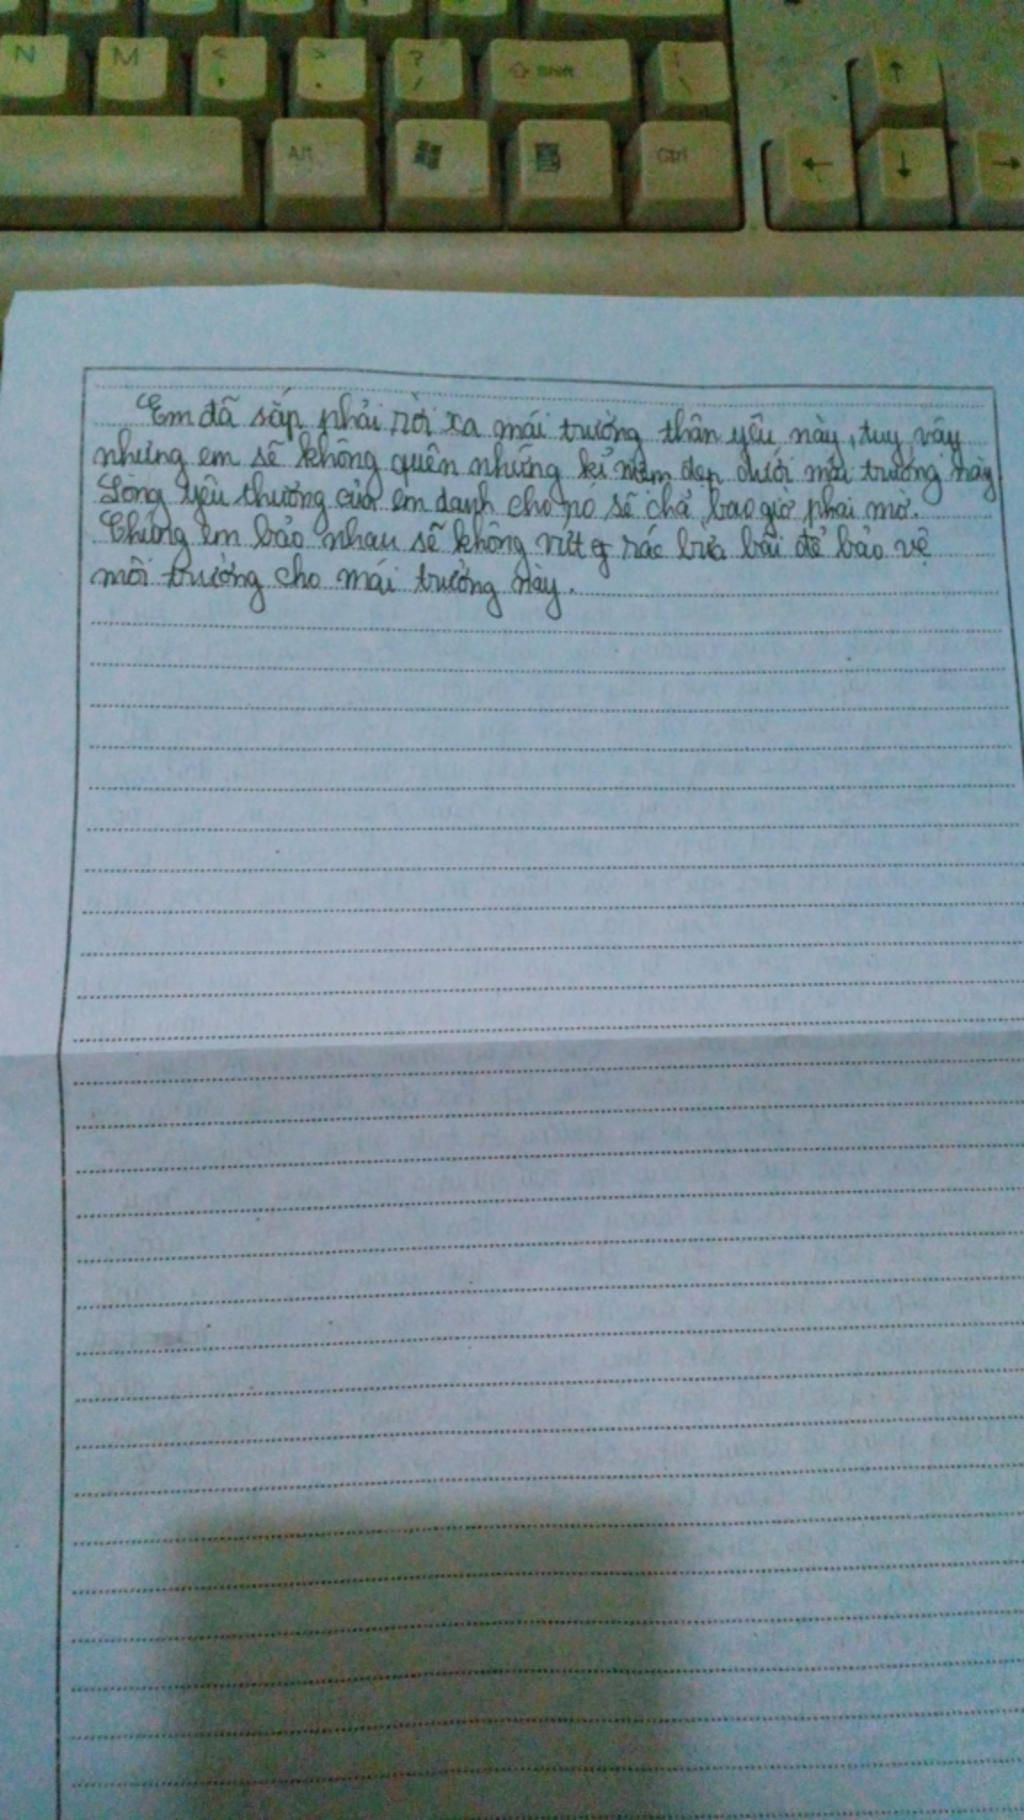 N M < , > . ? / Shift | \ ↑
Alt Ctrl ← ↓ →
Em đã sắp phải rời xa mái trường thân yêu này, tuy vây
nhưng em sẽ không quên những kỉ niệm đẹp dưới mái trường này
Lòng yêu thương của em danh cho nó sẽ chả bao giờ phai mờ.
Chúng em bảo nhau sẽ không vứt rác bừa bãi để bảo vệ
môi trường cho mái trường này.